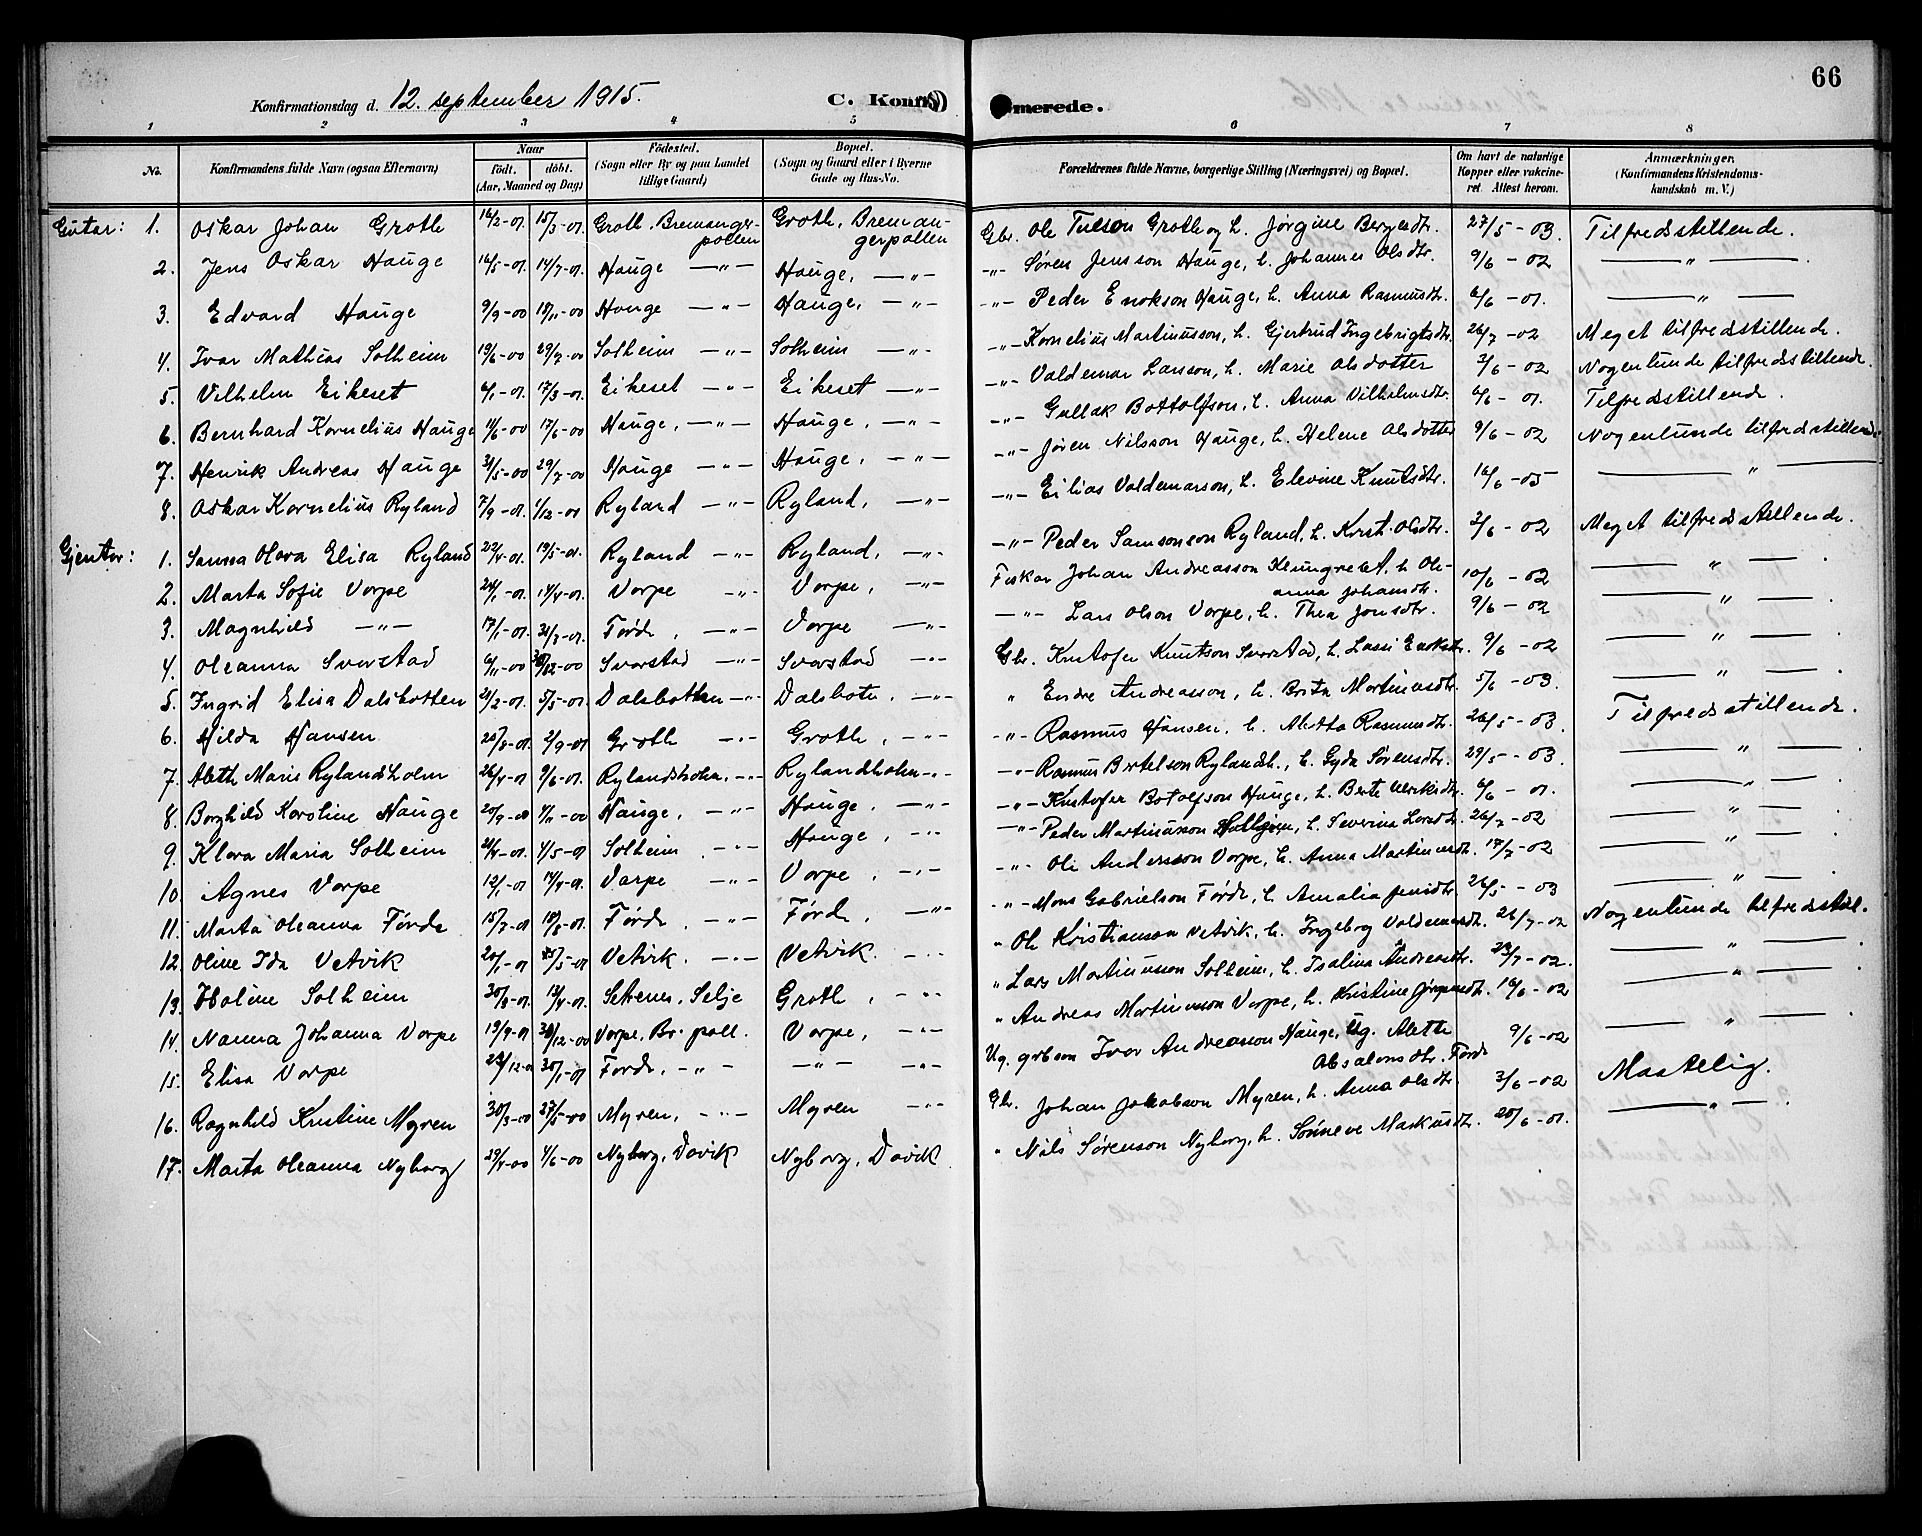 66
Konfirmationsdag d. 12. september 1915.
C. Konfirmerede.
1 2 3 4 5 6 7 8
No.
Konfirmandens fulde Navn (ogsaa Efternavn)
Naar
födt. döbt.
(Aar, Maaned og Dag)
Födested.
(Sogn eller By og paa Landet
tillige Gaard)
Bopæl.
(Sogn og Gaard eller i Byerne
Gade og Hus-No.
Forældrenes fulde Navne, borgerlige Stilling (Næringsvei) og Bopæl.
Om havt de naturlige
Kopper eller vakcine-
ret. Attest herom.
Anmærkninger.
(Konfirmandens Kristendoms-
kundskab m. V.)
Gutar: 1. Oskar Johan Groth 15/3-01. Groth, Bremanger- Groth, Breman- Gbr. Ole Groth og h. Jørgine 27/5-03. Tilfredsstillende.
pollen gerpollen
2. Jens Oskar Hauge 16/5-01. 14/7-01. Hauge —"— Hauge, —"— —"— Søren Jensson Hauge, h. Johanne Olsdtr. 9/6-02 —"—
3. Edvard Hauge 9/9-00 18/11-00 Hauge —"— Hauge, —"— —"— Peder Enokson Hauge, h. Anna Rasmusdtr. 6/6-01. —"—
4. Ivar Mathias Solheim 19/6-00 29/7-00 Solheim —"— Solheim —"— —"— Kornelius Martinusson, h. Gjertrud Ingebrigtsdtr. 26/7-02 Meget tilfredsstillende.
5. Vilhelm Eikeset 6/1-01. 17/3-01. Eikeset —"— Eikeset —"— —"— Valdemar Larsson, h. Marie Olsdotter 3/6-02 Nogenlunde tilfredsstillende.
6. Bernhard Kornelius Hauge 11/6-00 17/6-00 Hauge, —"— Hauge, —"— —"— Gullak Bottolfson, h. Anna Vilhelmsdtr. 6/6-01. Tilfredsstillende.
7. Henrik Andreas Hauge 31/5-00 29/7-00 Hauge —"— Hauge, —"— —"— Jøren Nilsson Hauge, h. Helene Olsdotter 9/6-02 Nogenlunde tilfredsstillende
8. Oskar Kornelius Ryland 7/9-01. 1/12-01 Ryland —"— Ryland, —"— —"— Eilias Valdemarson, h. Elevine Knutsdtr. 16/6-05 —"—
Gjentor: 1. Sanna Olava Elisa Ryland 22/4-01. 19/5-01. Ryland —"— Ryland, —"— —"— Peder Samsonson Ryland, h. Krist. Olsdtr. 3/6-02 Meget tilfredsstillende.
2. Marta Sofie Vorpe 24/1-01. 14/4-01. Vorpe —"— Vorpe, —"— Fiskar Johan Andreasson h. Ole- 10/6-02 —"—
anna Johansdtr.
3. Magnhild —"— 17/1-01. 31/3-01. Førde, —"— Vorpe —"— —"— Lars Olson Vorpe, h. Thea Jonsdtr. 9/6-02 —"—
4. Oleanna Svorstad 6/11-00 30/12-00 Svorstad —"— Svorstad —"— Gbr. Kristofer Knutson Svorstad, h. 9/6-02 —"—
5. Ingrid Elisa Dalsbotten 21/2-01. 5/5-01. Dalsbotten —"— Dalsbotn, —"— " Endre Andreasson, h. Brita Martinusdtr. 5/6-03. —"—
6. Hilda Hansen 20/8-01. 2/9-01 Groth —"— Groth, —"— —"— Rasmus Hansen, h. Rasmusdtr. 26/5-03. Tilfredsstillende.
7. Aleth Marie Rylandsholm 26/4-01 9/6-01. Rylandsholm, —"— Rylandsholm —"— —"— Rasmus Bertelson Rylandsh., h. Gyda Sørensdtr. 29/5-03. —"—
8. Borghild Karoline Hauge 20/9-00 4/11-00 Hauge, —"— Hauge, —"— —"— Kristofer Botolfson Hauge, h. Berte Ulriksdtr. 6/6-01. —"—
9. Klara Maria Solheim 21/4-01. 4/5-01 Solheim —"— Hauge, —"— —"— Peder Martinusson h. Severina Larsdtr. 26/7-02 —"—
10. Agnes Vorpe 12/1-01 14/4-01. Vorpe —"— Vorpe, —"— —"— Ole Andersson Vorpe, h. Anna Martinusdtr. 17/7-02 —"—
11. Marta Oleanna Førde 15/7-01 18/8-01. Førde, —"— Førde, —"— —"— Mons Gabrielson Førde, h. Amalia Jensdtr. 26/5-03 —"—
12. Oline Ida Vetvik 20/1-01 Vetvik. —"— Vetvik. —"— " Ole Kristianson Vetvik, h. Ingeborg Valdemarsdtr. 26/7-02 Nogenlunde tilfredsstil.
13. Haline Solheim Setenes, Selje Groth, —"— " Lars Martinusson Solheim, h. Isalina Andreasdtr. —"—
14. Nanna Johanna Vorpe 30/12-00 Vorpe, Br. poll. Vorpe, —"— " Andreas Martinusson Vorpe, h. Kristine 16/6-02 —"—
15. Elisa Vorpe 30/1-01 Førde, —"— —"— —"— Ug. grbson Ivar Andreasson Hauge, Ug. Alette 9/6-02 —"—
Absalonsdtr. Førde
16. Ragnhild Kristine Myren 30/3-00 27/5-00 Myren, —"— Myren —"— Gbr. Johan Jakobson Myren, h. Anna Olsdtr. 3/6-02 Maatelig.
17. Marta Oleanna Nyborg 29/4-00 4/6-00 Nyborg, Davik Nyborg, Davik " Nils Sørenson Nyborg, h. Sønneve Markusdtr. 20/6-01. —"—